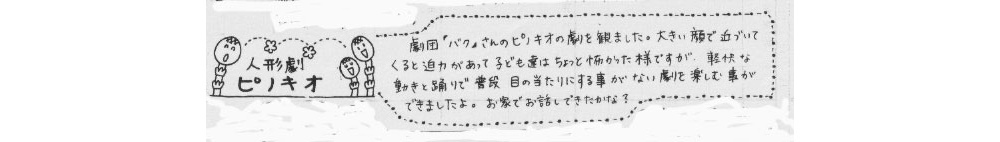 人形劇
ピノキオ
劇団『バク』さんのピノキオの劇を観ました。大きい顔で近づいて
くると迫力があって子ども達はちょっと怖かった様ですが、軽快な
動きと踊りで普段目の当たりにする事がない劇を楽しむ事が
できましたよ。お家でお話しできたかな？